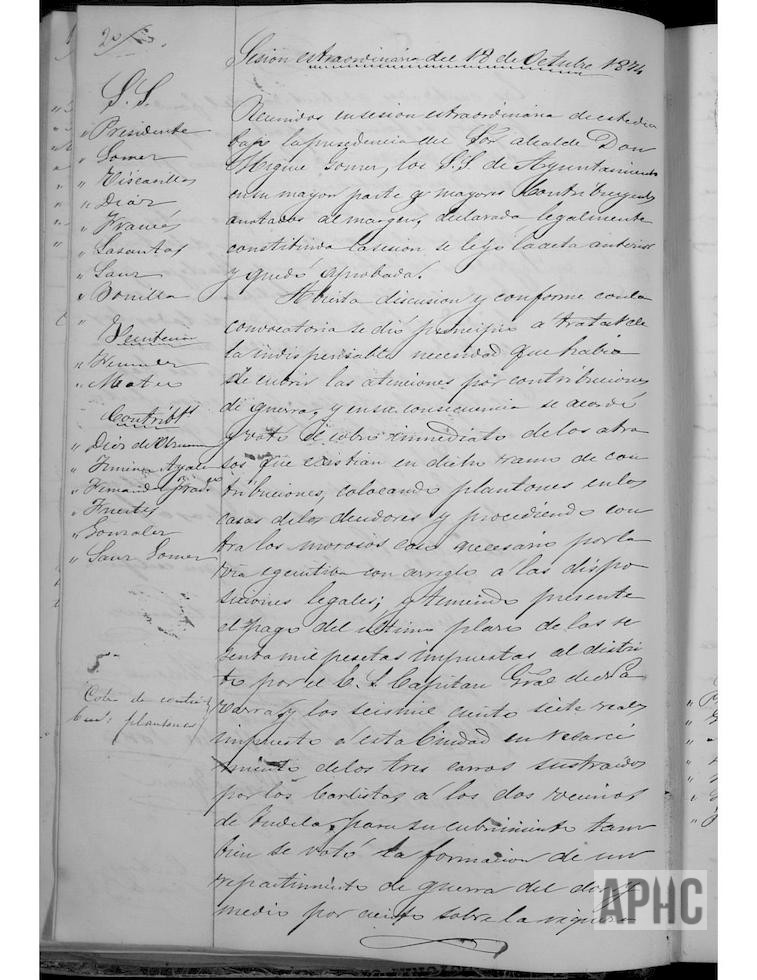 Sesion estraordinaria del 18 de Octubre 1874
S.S.
" Presidente
" Gomez
" Viscasillas
" Diaz
" Francés
" Lasantas
" Sanz
" Bonilla
"
" Mateo
Contribts
" Fuertes
" Gonzalez
" Sanz Gomez
Cobro de contribu
plantones
Reunidos en sesion estraordinaria de este dia
bajo la presidencia del Sor alcalde Don
Miguel Gomez, los S.S. de Ayuntamiento
en su mayor parte y mayores Contribuyentes
anotados al margen, declarada legalmente
constituida la sesion se leyó la acta anterior
y quedó aprobada.
Abierta discusion y conforme con la
convocatoria se dió principio á tratar de
la indispensable necesidad que habia
de cubrir las atenciones por contribuciones
de guerra, y en su consecuencia se acordó
y votó el cobro inmediato de los atra
sos que existian en dicho ramo de con
tribuciones, colocando plantones en las
casas de los deudores y procediendo con
tra los morosos caso necesario por la
via egecutiva con arreglo á las dispo
siciones legales; y teniendo presente
el pago del ultimo plazo de las se
senta mil pesetas impuestas al distri
to por el E. S. Capitan Gral de Na
varra, y los seis mil ciento siete reales
impuesto á esta Ciudad en resarci
miento de los tres carros sustraidos
por los Carlistas á los dos vecinos
de Tudela, para su cubrimiento tam
bien se votó la formacion de un
repartimiento de guerra del dos y
medio por ciento sobre la riqueza
APHC